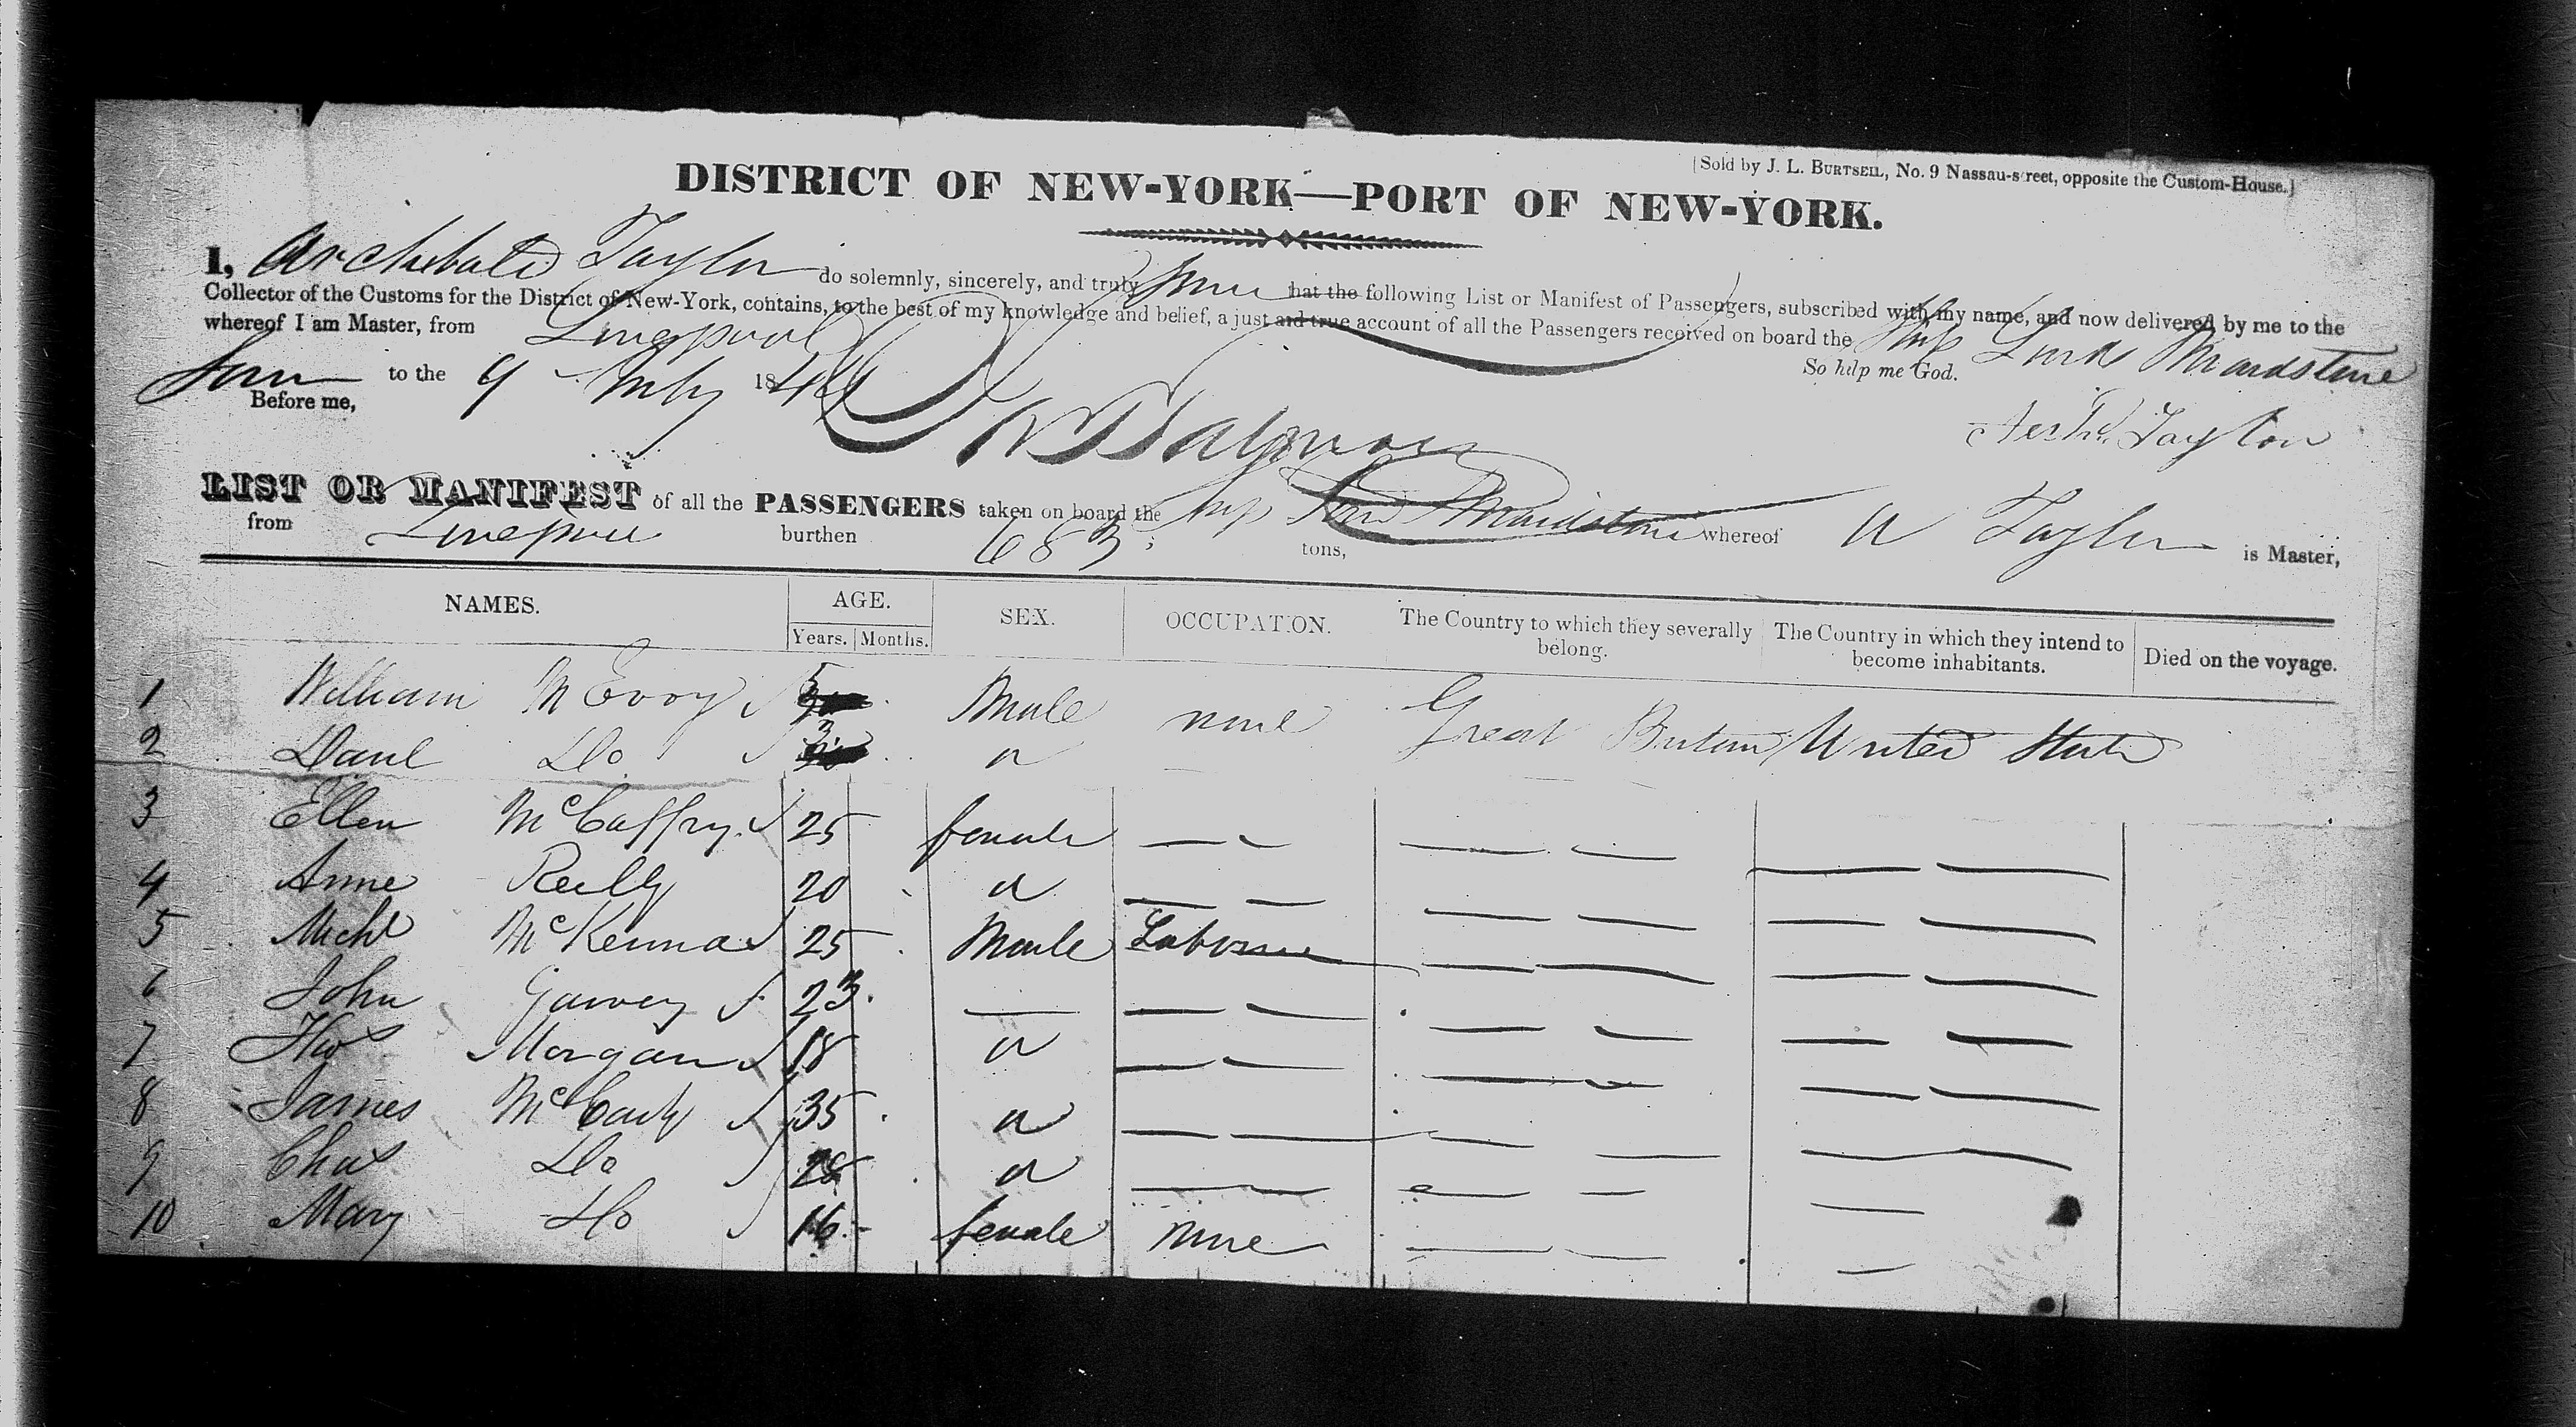 [Sold by J. L. BURTSELL, No. 9 Nassau-street, opposite the Custom-House.]
DISTRICT OF NEW-YORK—PORT OF NEW-YORK.
I, Archibald Taylor do solemnly, sincerely, and truly swear that the following List or Manifest of Passengers, subscribed with my name, and now delivered by me to the
Collector of the Customs for the District of New-York, contains, to the best of my knowledge and belief, a just and true account of all the Passengers received on board the Ship Lord Maidstone
whereof I am Master, from Liverpool
So help me God.
Sworn to the 9 July 184
Before me,
Archd. Taylor
LIST OR MANIFEST of all the PASSENGERS taken on board the Ship Lord Maidstone whereof A Taylor is Master,
from Liverpool burthen 683 tons,
NAMES. AGE. SEX. OCCUPATION. The Country to which they severally belong. The Country in which they intend to become inhabitants. Died on the voyage.
Years. Months.
1 William McEvoy 5 Male none Great Britain United States
2 Danl Do 3 "
3 Ellen McCaffry 25 female
4 Anne Reilly 20 "
5 Michl McKenna 25 Male Labourer
6 John Garvey 23
7 Thos Morgan 18 "
8 James McCarty 35 "
9 Chas Do "
10 Mary Do 16 female none